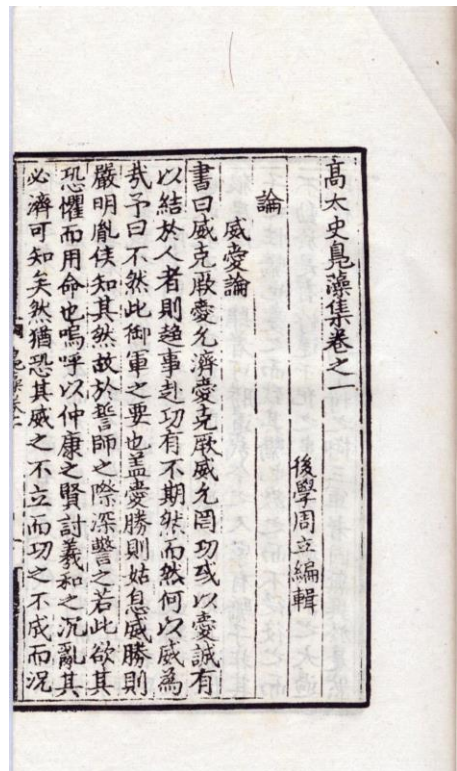 高太史鳧藻集卷之一
後學周立編輯
論
威愛論
書曰威克厥愛允濟愛克厥威允罔功或以愛誠有
以結於人者則趨事赴功有不期然而然何以威為
㢤予曰不然此御軍之要也盖愛勝則姑息威勝則
嚴明胤侯知其然故於誓師之際深警之若此欲其
恐懼而用命也嗚呼以仲康之賢討羲和之沉亂其
必濟可知矣然猶恐其威之不立而功之不成而況